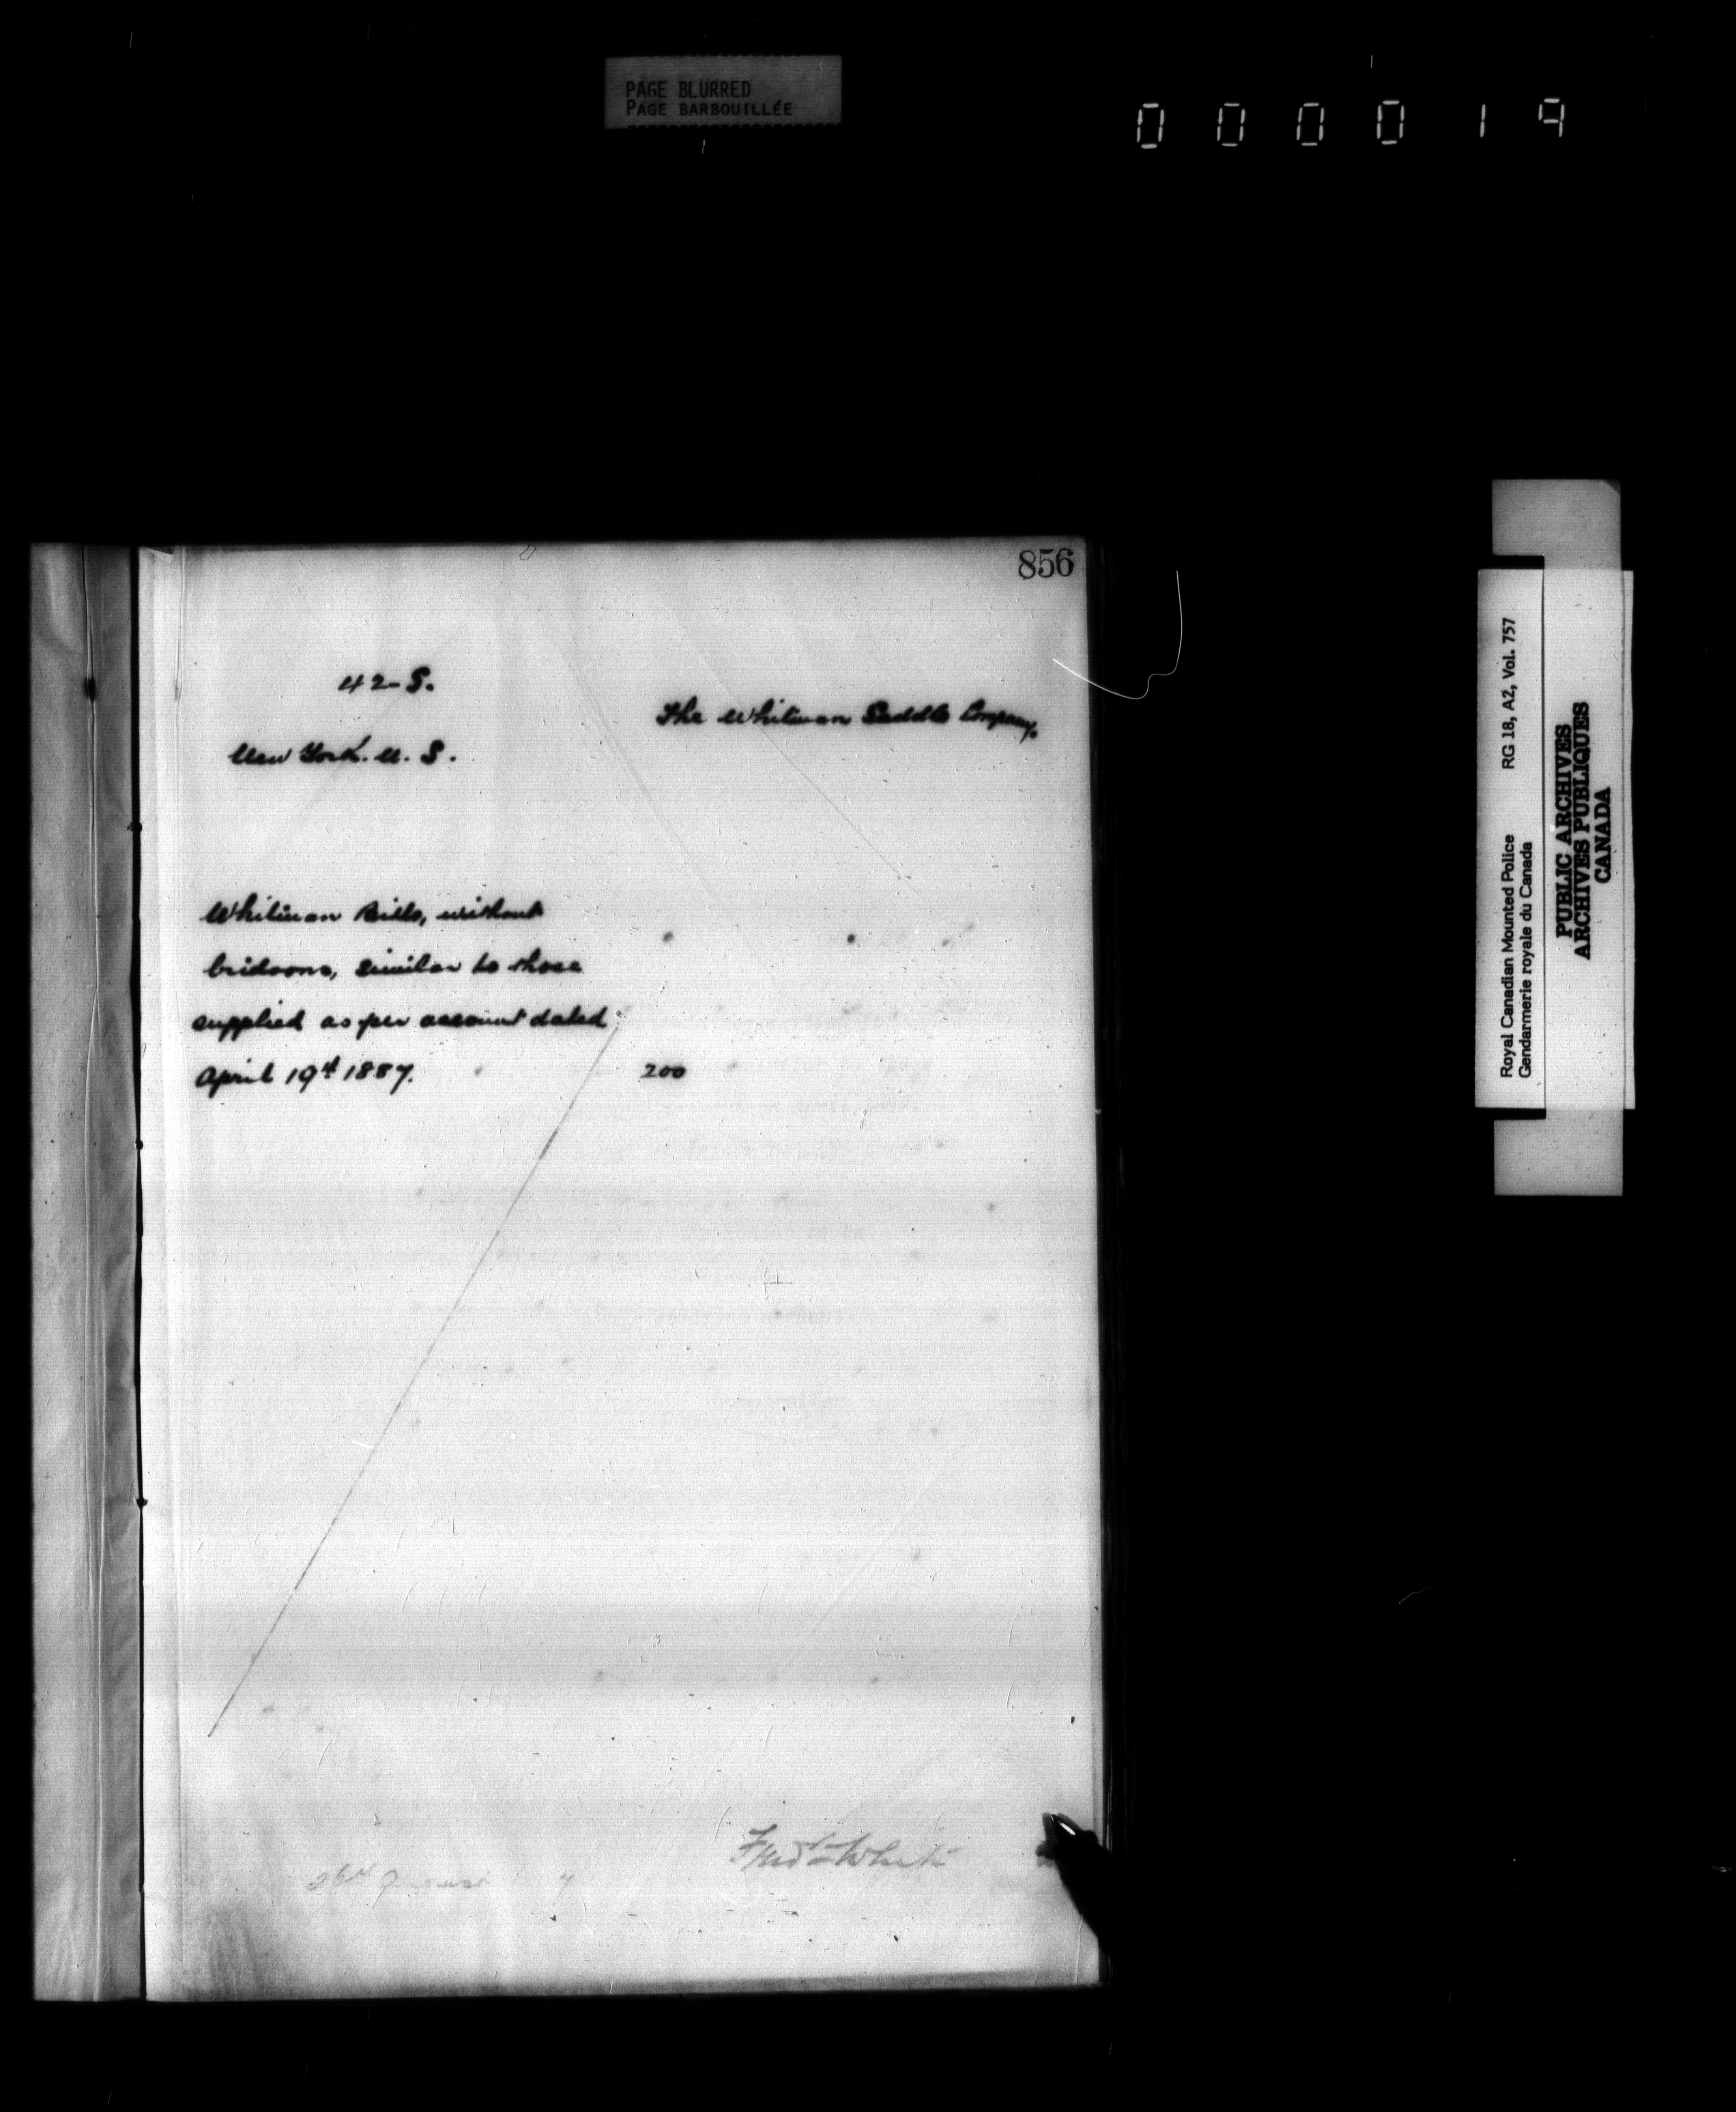 PAGE BLURRED
PAGE BARBOUILLÉE
000019
856
42-S.
The Whitman Saddle Company.
New York. U. S.
Whitman Bitts, without
bridoons, similar to those
supplied as per account dated
April 19th 1887. 200
Fred White
26th August 7
Royal Canadian Mounted Police RG 18, A2, Vol. 757
Gendarmerie royale du Canada
PUBLIC ARCHIVES
ARCHIVES PUBLIQUES
CANADA